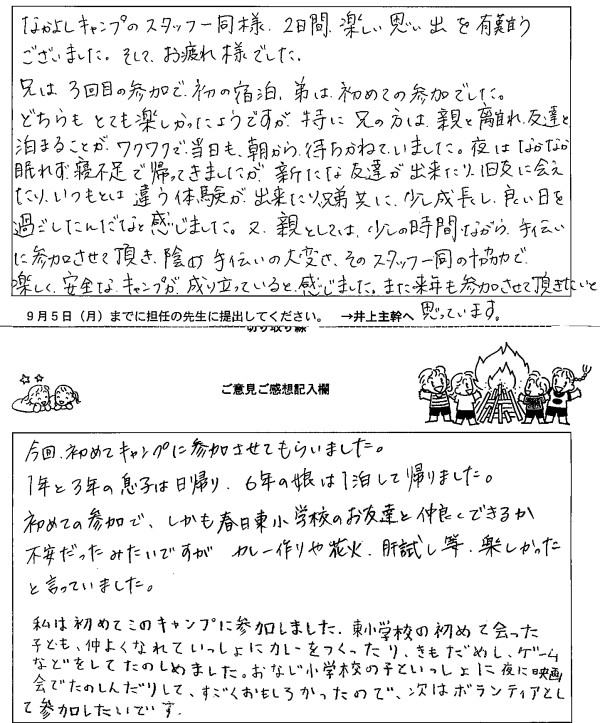 なかよしキャンプのスタッフ一同様、2日間、楽しい思い出を有難う
ございました。そして、お疲れ様でした。
兄は、3回目の参加で、初の宿泊、弟は、初めての参加でした。
どちらも とても楽しかったようですが、特に 兄の方は、親と離れ、友達と
泊まることが、ワクワクで、当日も、朝から、待ちかねていました。夜は なかなか
眠れず、寝不足で帰ってきましたが、新たな 友達が 出来たり、旧友に会え
たり、いつもとは 違う体験が、出来たり、兄弟共に、少し成長し、良い日を
過ごしたんだなと感じました。又、親としては、少しの時間ながら、手伝い
に参加させて頂き、陰の 手伝いの大変さ、そのスタッフ一同の協力で、
楽しく、安全な、キャンプが、成り立っていると、感じました。また来年も参加させて頂きたいと
思っています。
9月5日（月）までに担任の先生に提出してください。 →井上主幹へ
切り取り線
ご意見ご感想記入欄
今回、初めてキャンプに参加させてもらいました。
1年と3年の息子は日帰り、6年の娘は1泊して帰りました。
初めての参加で、しかも春日東小学校のお友達と仲良くできるか
不安だったみたいですが カレー作りや花火、肝試し等、楽しかった
と言っていました。
私は初めてこのキャンプに参加しました。東小学校の初めて会った
子とも、仲よくなれていっしょにカレーをつくったり、きもだめし、ゲーム
などをしてたのしめました。おなじ小学校の子といっしょに夜に映画
会でたのしんだりして、すごくおもしろかったので、次はボランティアとし
て参加したいです。